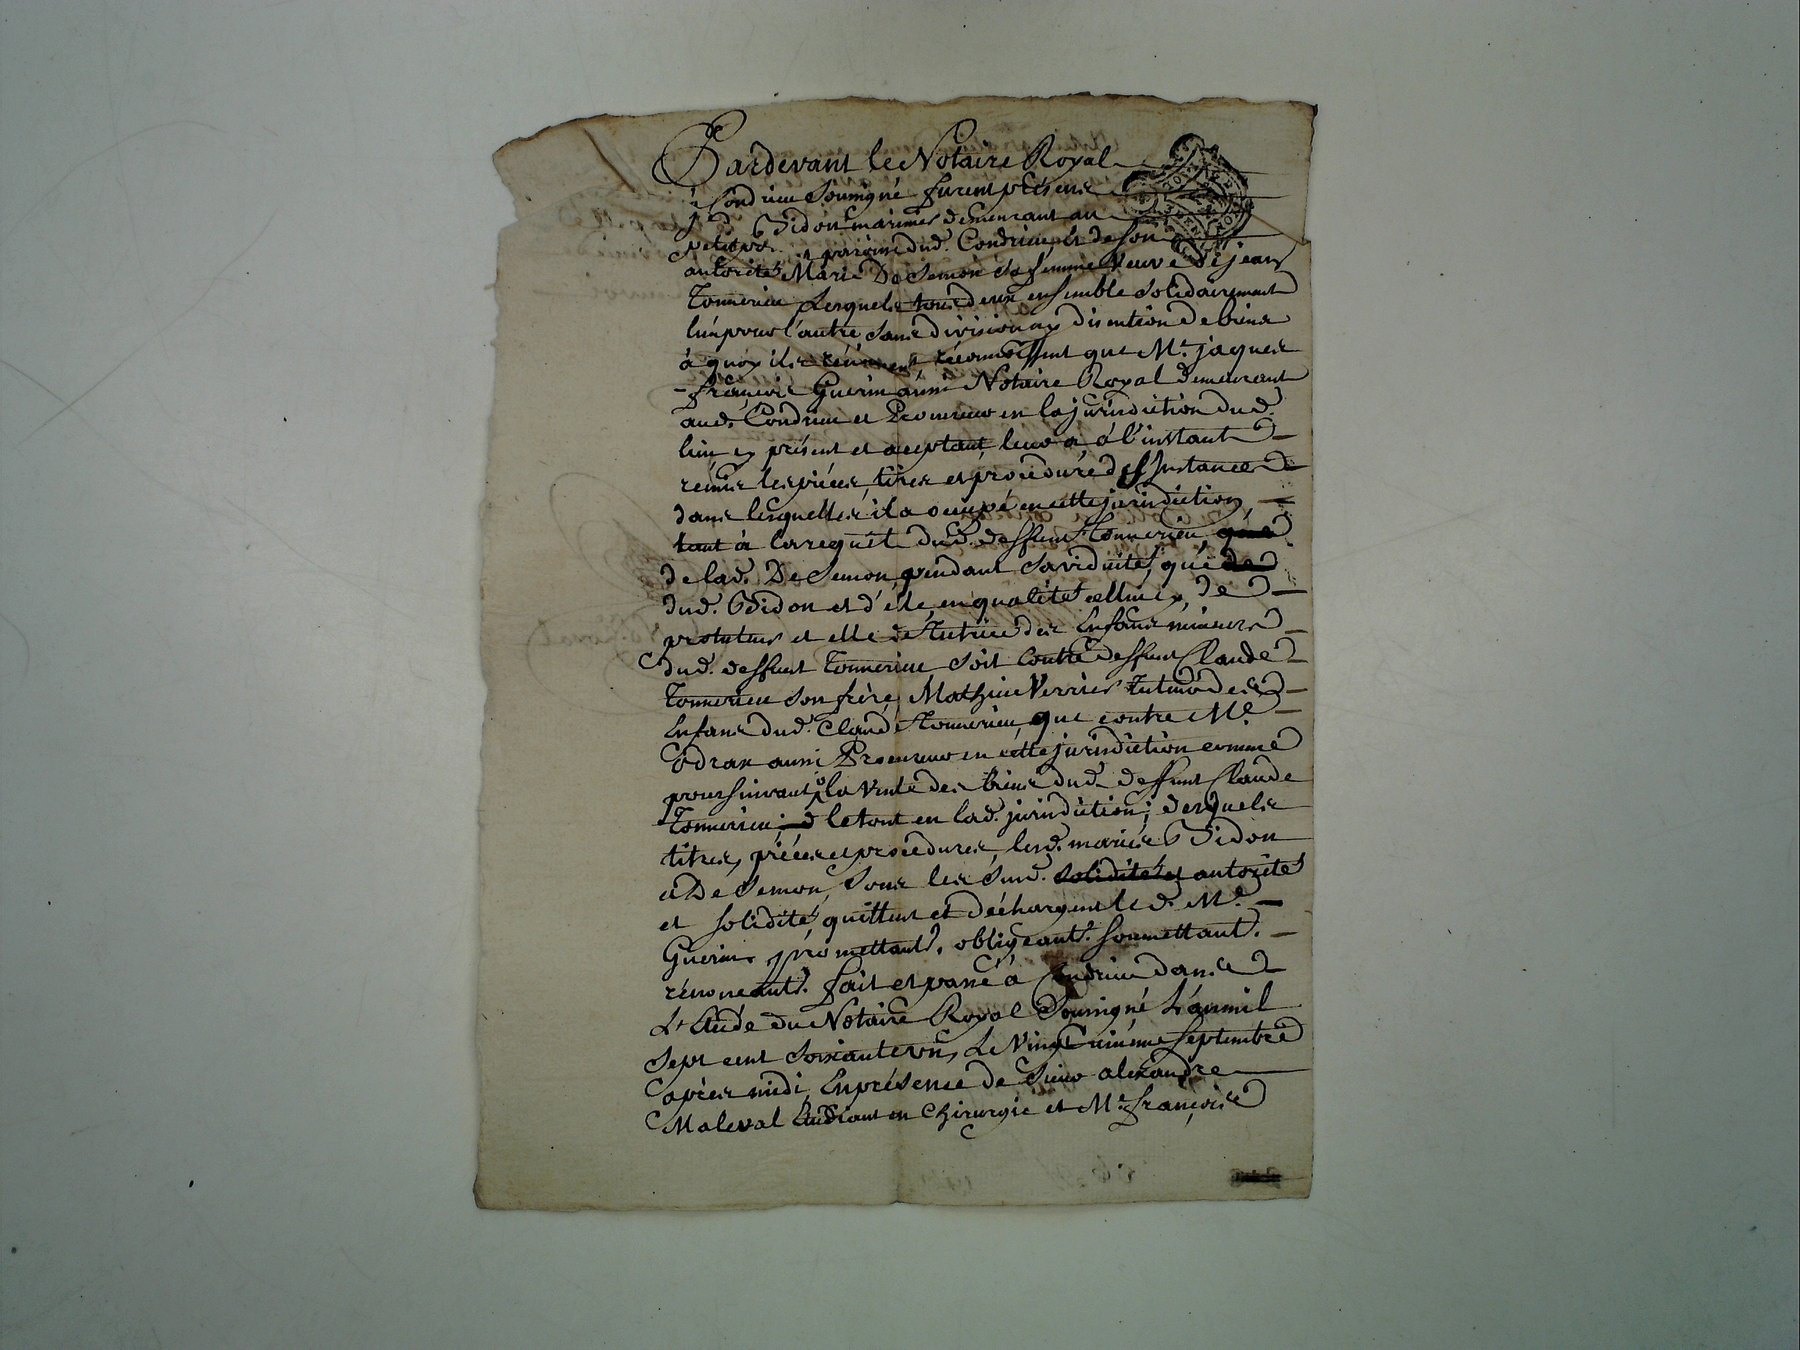 Pardevant le Notaire Royal
à Condrieu soussigné furent présens
Gidon marinier demeurant au
petit parroisse dud. Condrieu, et de son
autorité Marie De Semon sa femme veuve de jean
Tonnerieu Lesquels tous deux ensemble solidairement
l'un pour l'autre sans division ny discution de biens
à quoy ils rénoncent, reconnoissent que Me. jaques
françois Guerin aussi Notaire Royal demeurant
aud. Condrieu et Procureur en la jurisdiction dud.
lieu cy présent et aceptant leur a à l'instant
rémis les pièces, titres et procédure des Instances
dans lesquelles il a occupé en cette jurisdiction,
tant à la requête dud. deffunt Tonnerieu,
de lad. De Semon, pendant sa viduité, que
dud. Gidon et d'éle, en qualité celluicy, de
protuteur et elle de Tutrice des Enfans mineurs
dud. deffunt Tonnerieu soit contre deffunt Claude
Tonnerieu son frère, Mathieu Verrier Tuteur des
Enfans dud. Claude Tonnerieu, que contre Me.
Odran aussi Procureur en cette jurisdiction comme
poursuivant la vente des biens dud. deffunt Claude
Tonnerieu; le tout en lad. jurisdiction; desquels
titres, pièces et procédures, lesd. mariés Gidon
et De Semon, sous les susd. solidité et autorité
et solidité, quittent et déchargent led. Me.
Guerin, prométtant, obligeant. soumettant.
rénonçant. fait et passé à Condrieu dans
L'Etude du Notaire Royal soussigné L'an mil
sept cent soixante un, Le Vingt unième septembre
après midi, En présence de Sieur alexandre
Maleval Etudiant en Chirurgie et Me. françois